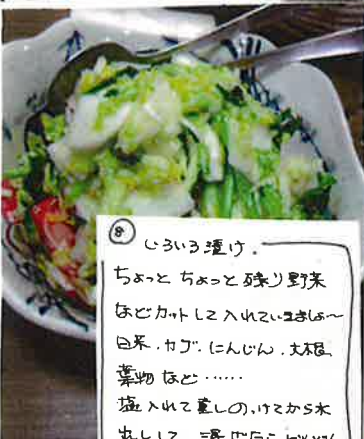 ⑧ いろいろ漬け.
ちょっと ちょっと 残り野菜
などカットして入れていきましょ〜
白菜.カブ.にんじん.大根.
葉物など……
塩入れて重しのっけてから水
出しして